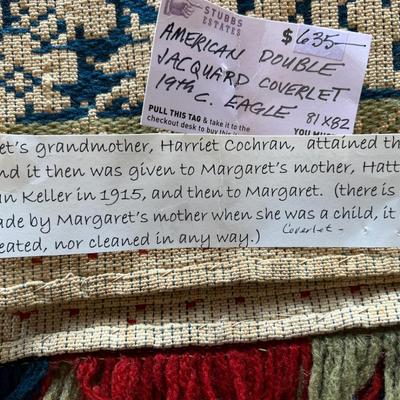 STUBBS
ESTATES
$635
AMERICAN DOUBLE
JACQUARD COVERLET
19th C. EAGLE 81x82
PULL THIS TAG & take it to the
checkout desk to buy this
YOU MUS
et's grandmother, Harriet Cochran, attained th
nd it then was given to Margaret's mother, Hatt
an Keller in 1915, and then to Margaret. (there is
ade by Margaret's mother when she was a child, it
eated, nor cleaned in any way.) Coverlet -